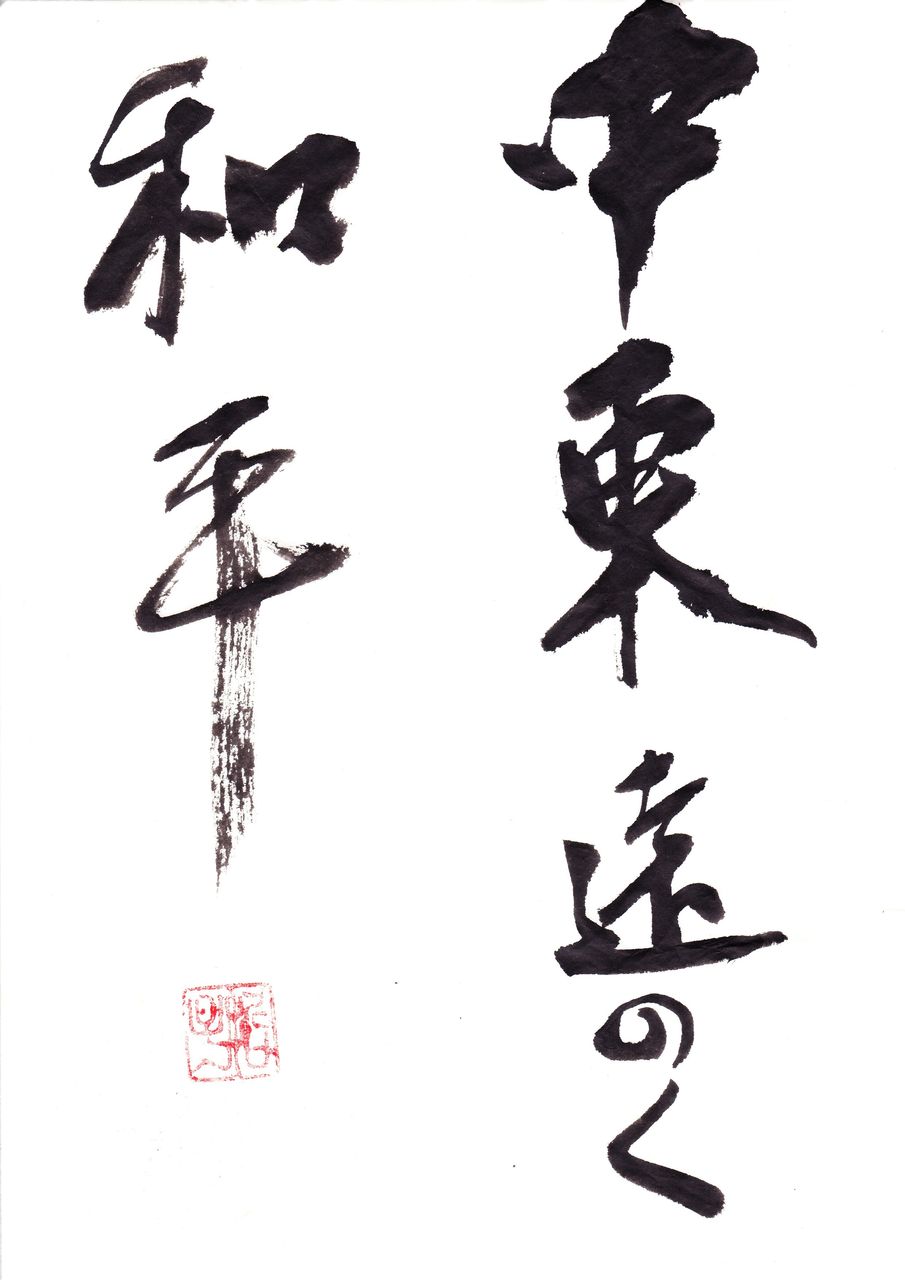 中東遠のく
和平